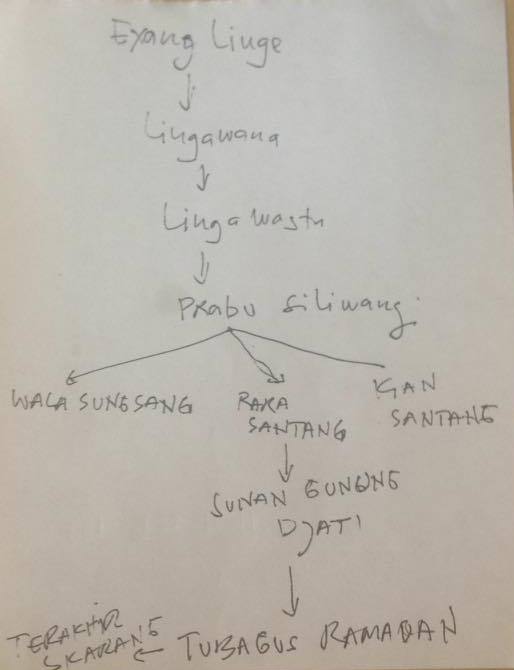 Eyang Linge
Lingawana
Lingawastu
Prabu Siliwangi
WALA SUNGSANG
RARA
SANTANG
KIAN
SANTANG
SUNAN GUNUNG
DJATI
TUBAGUS RAMADAN
TERAKHIR
SKARANG